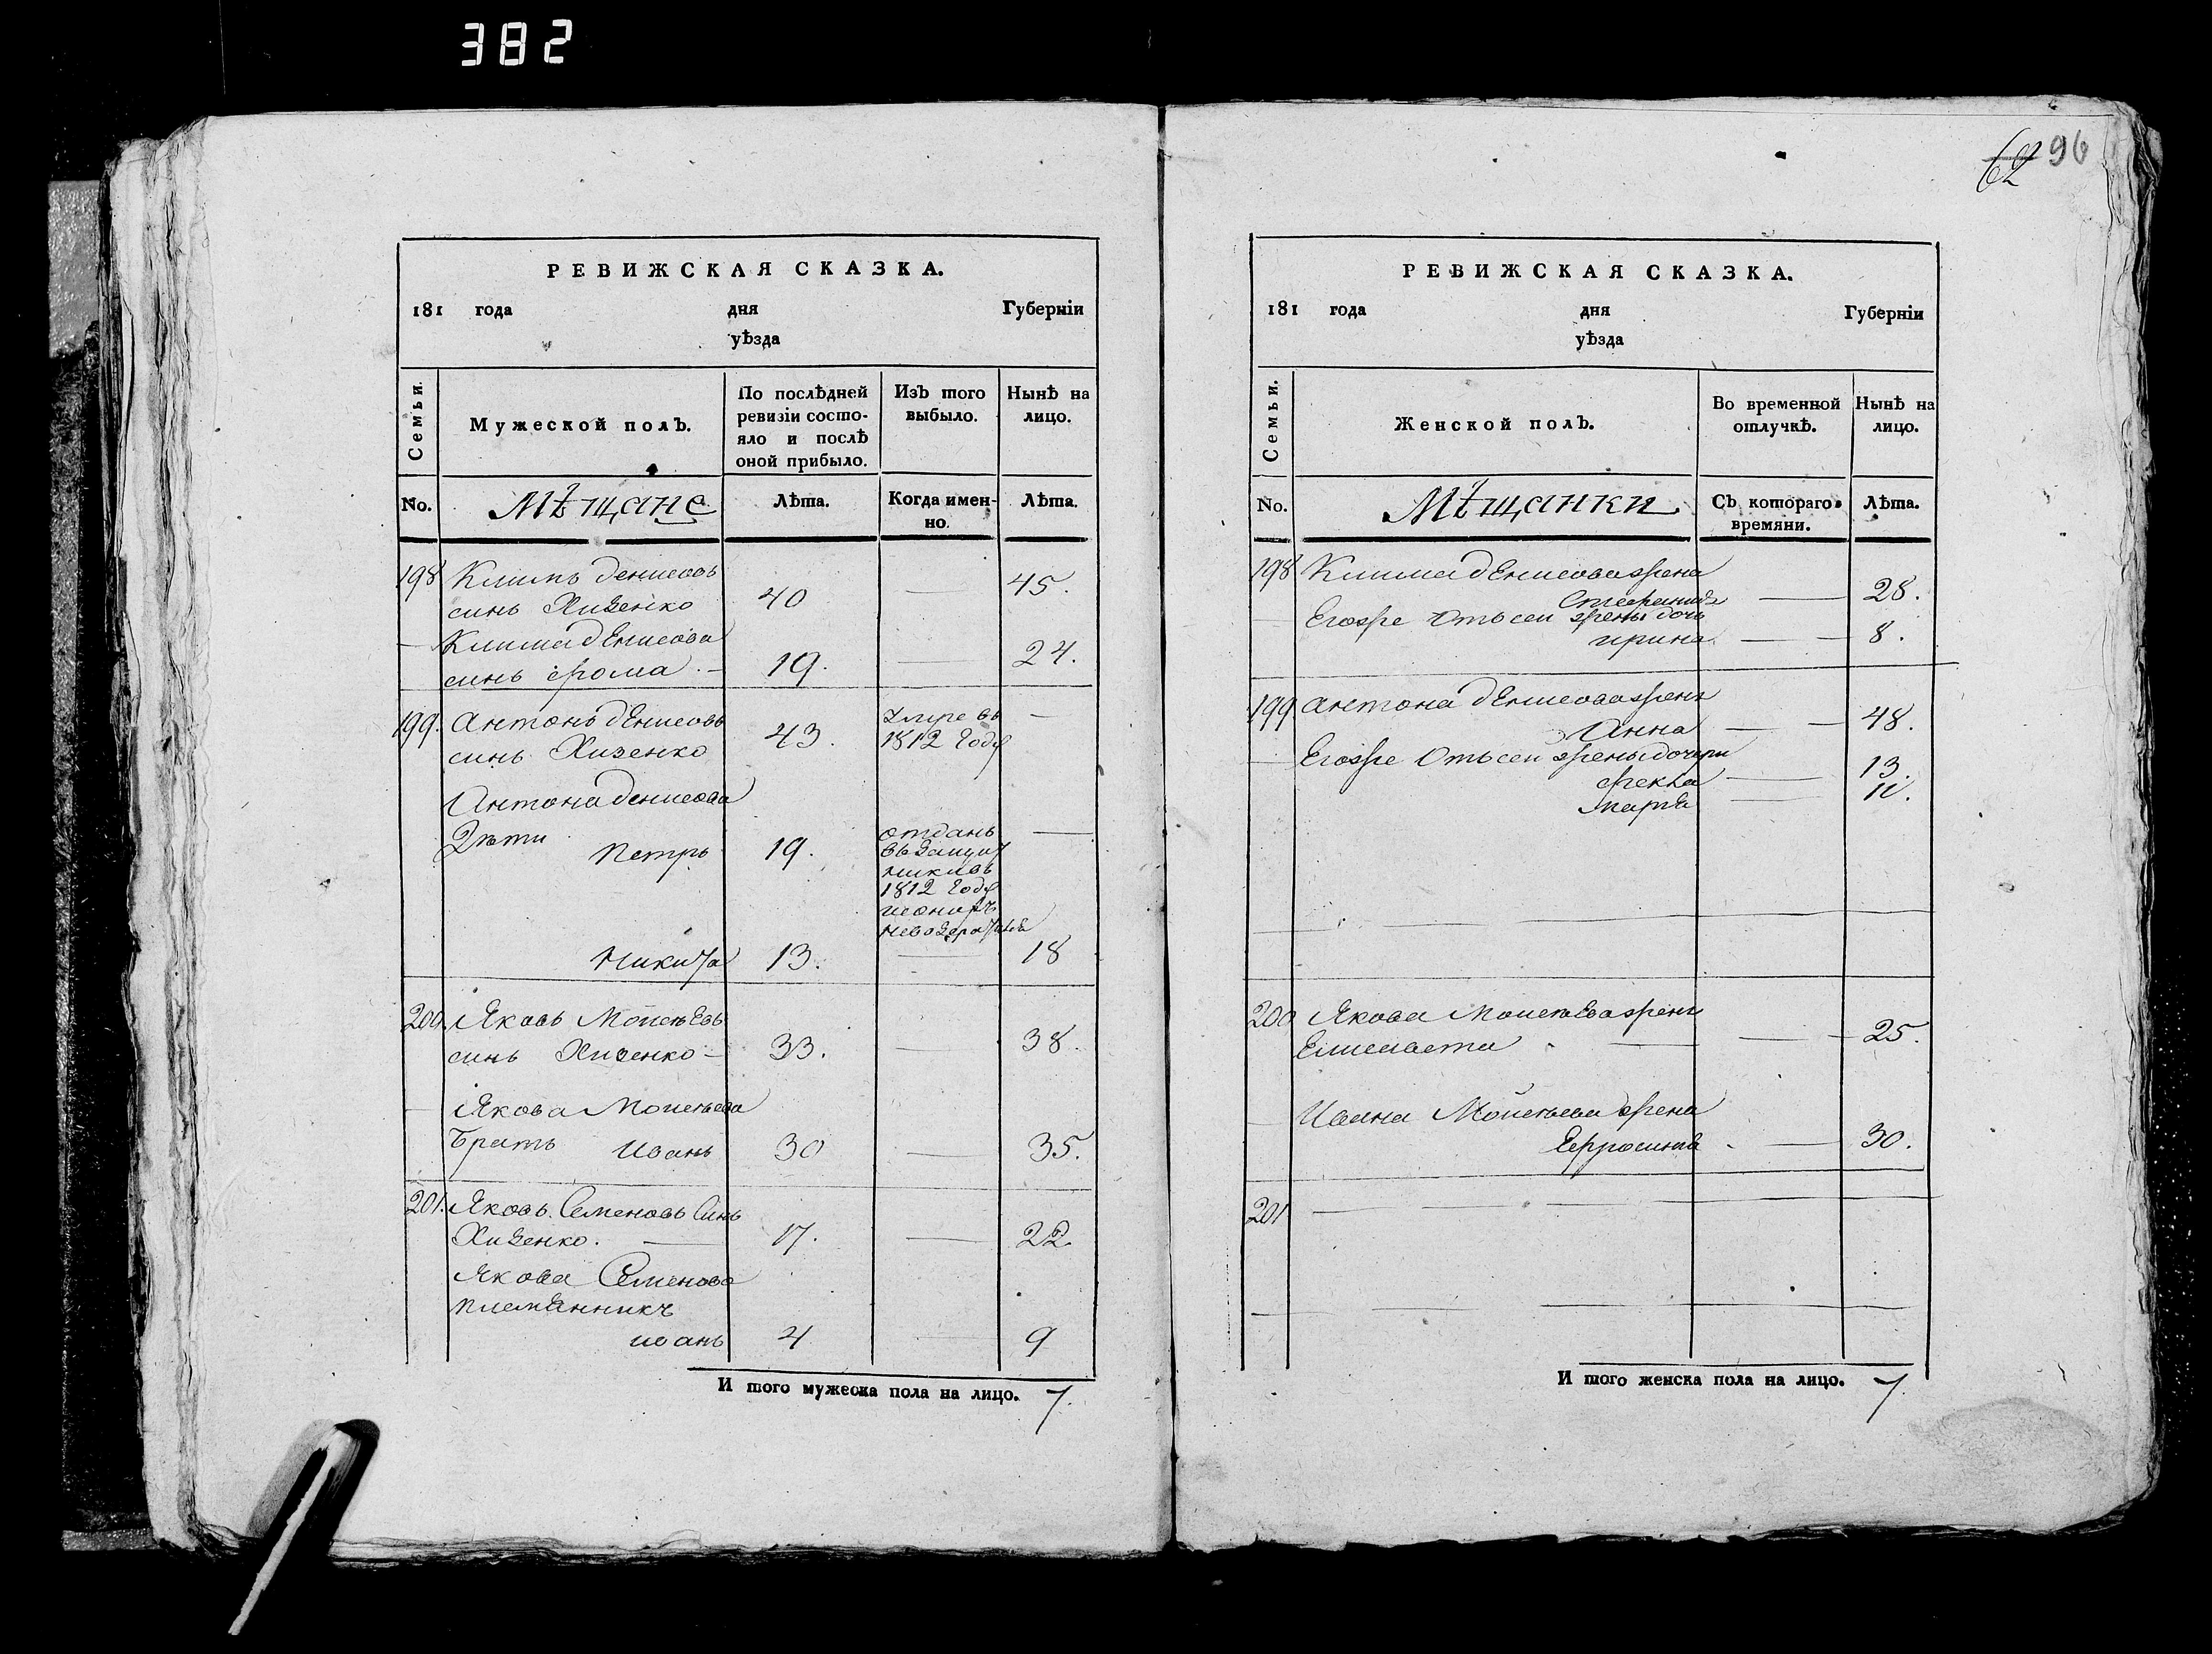 382
62 96
РЕВИЖСКАЯ СКАЗКА.
181 года дня Губерніи
уѣзда
Семьи.
Мужеской полъ.
По послѣдней ревизіи состо-
яло и послѣ
оной прибыло.
Изъ того выбыло.
Нынѣ на лицо.
No.
Мѣщане
Лѣта.
Когда имен-
но.
Лѣта.
198 Климъ денисовъ
синъ Хизенко 40 — 45.
— Клима денисова
синъ фома. — 19. — 24.
199. антонъ денисовъ
синъ Хизенко 43. умре въ 1812 Году —
Антона денисова
Дѣти Петръ 19. отданъ —
1812 Году
Никита 13. — 18
200. Яковъ Мойсѣевъ
синъ Хизенко — 33. — 38.
— Якова Мойсѣева
братъ Иванъ 30 — 35.
201. Яковъ Семеновъ Синъ
Хизенко. — 17. — 22
Якова Семенова
племянникъ
иванъ 4 — 9
И того мужеска пола на лицо. 7.
РЕВИЖСКАЯ СКАЗКА.
181 года дня Губерніи
уѣзда
Семьи.
Женской полъ.
Во временной отлучкѣ.
Нынѣ на лицо.
No.
Мѣщанки
Съ котораго времяни.
Лѣта.
198 Клима денисова жена
Стефанида — 28.
— Егоже отъ сей жены дочь
ирина. — 8.
199 антона денисова жена
Анна — 48.
— Егоже отъ сей жены дочери
фекла — 13.
марѣя — 11.
200 Якова Мойсѣева жена
Елисавета — 25.
— Ивана Мойсѣева жена
Ефросинія — 30.
201 —
И того женска пола на лицо. 7.